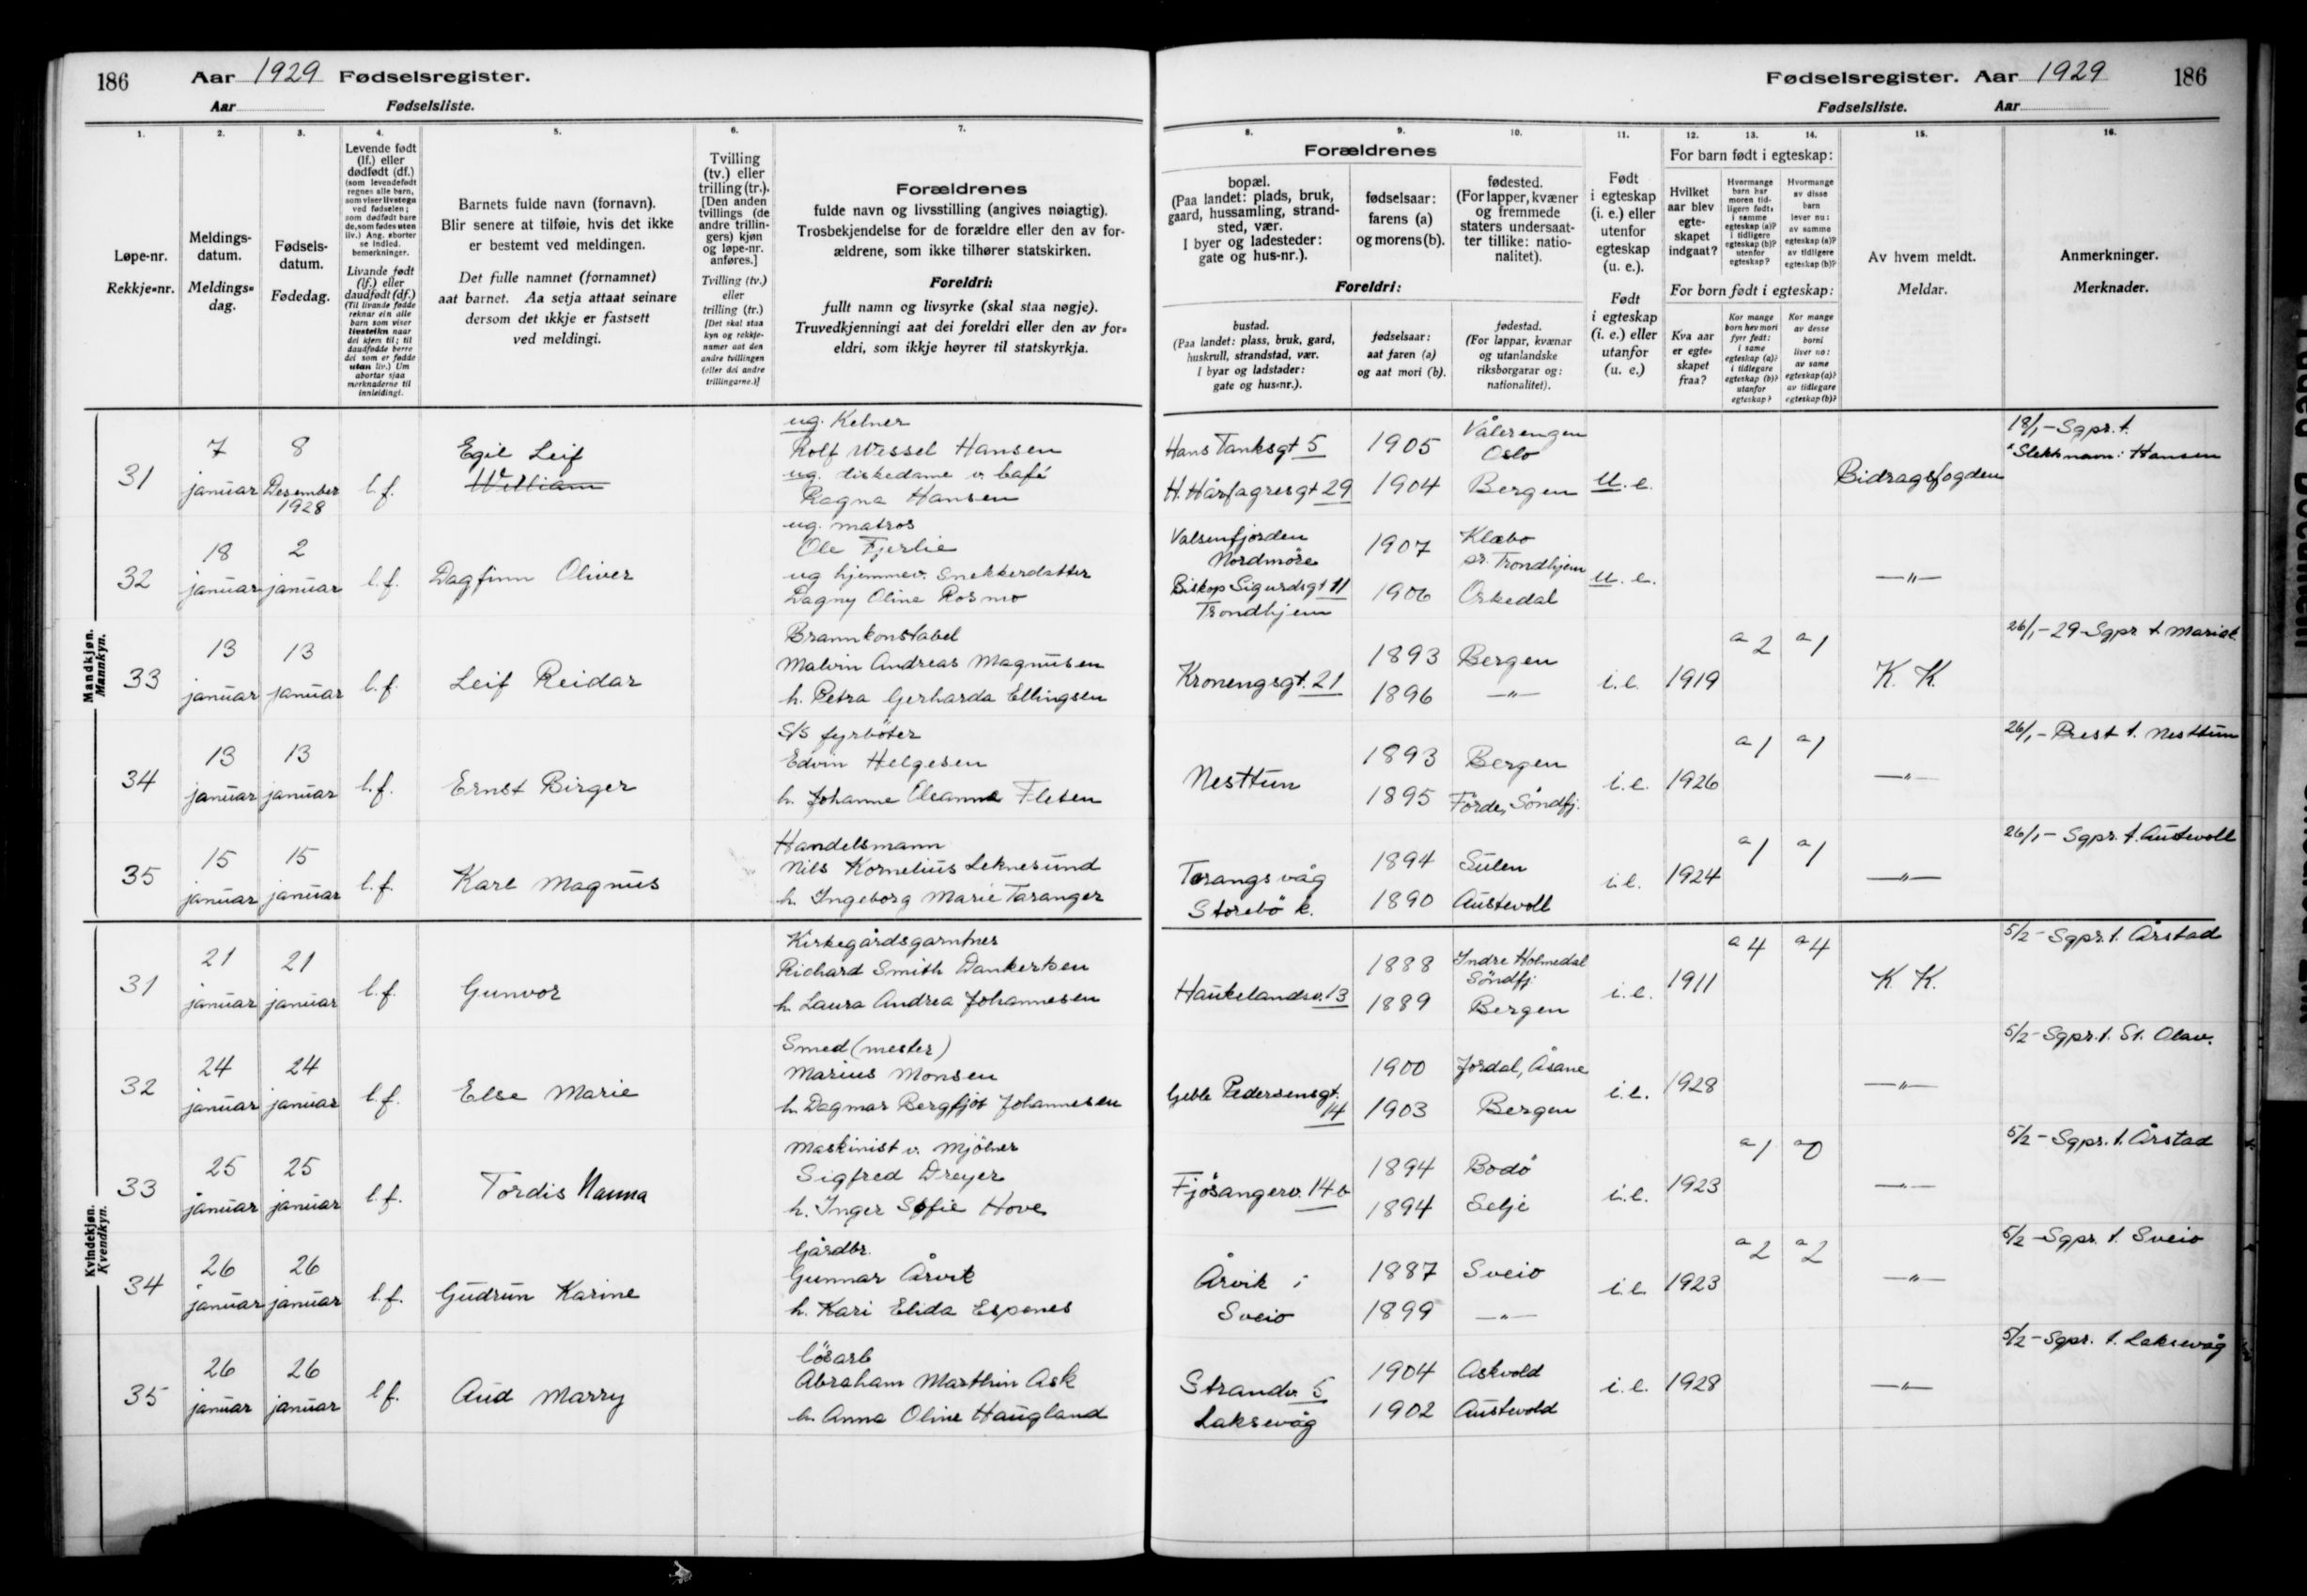 186 Aar 1929 Fødselsregister.
Aar Fødselsliste.
1. 2. 3. 4. 5. 6. 7.
Løpe-nr.
Rekkje-nr.
Meldings-
datum.
Meldings-
dag.
Fødsels-
datum.
Fødedag.
Levende født
(lf.) eller
dødfødt (df.)
(som levendefødt
regnes alle barn,
som viser livstegn
ved fødselen;
som dødfødt bare
de, som fødes uten
liv.) Ang. aborter
se indled.
bemerkninger.
Livande født
(lf.) eller
daudfødt (df.)
(Til livande fødde
reknar ein alle
barn som viser
livsteikn naar
dei kjem til; til
daudfødde berre
dei som er fødde
utan liv.) Um
abortar sjaa
merknaderne til
innleidingi.
Barnets fulde navn (fornavn).
Blir senere at tilføie, hvis det ikke
er bestemt ved meldingen.
Det fulle namnet (fornamnet)
aat barnet. Aa setja attaat seinare
dersom det ikkje er fastsett
ved meldingi.
Tvilling
(tv.) eller
trilling (tr.).
[Den anden
tvillings (de
andre trillin-
gers) kjøn
og løpe-nr.
anføres.]
Tvilling (tv.)
eller
trilling (tr.)
[Det skal staa
kyn og rekkje-
numer aat den
andre tvillingen
(eller dei andre
trillingarne.)]
Forældrenes
fulde navn og livsstilling (angives nøiagtig).
Trosbekjendelse for de forældre eller den av for-
ældrene, som ikke tilhører statskirken.
Foreldri:
fullt namn og livsyrke (skal staa nøgje).
Truvedkjenningi aat dei foreldri eller den av for-
eldri, som ikkje høyrer til statskyrkja.
Mandkjøn.
Mannkyn.
31 7 januar 8 Desember 1928 l.f. Egil Leif William
ug. Kelner
Rolf Wessel Hansen
ug. diskedame v. kafé
Ragna Hansen
32 18 januar 2 januar l.f. Dagfinn Oliver
ug. matros
Ole Fjerlie
ug hjemmev. Snekkerdatter
Dagny Oline Rosmo
33 13 januar 13 januar l.f. Leif Reidar
Brannkonstabel
Malvin Andreas Magnusen
h. Petra Gerharda Ellingsen
34 13 januar 13 januar l.f. Ernst Birger
S/S fyrböter
Edvin Helgesen
h. Johanne Oleanna Fleten
35 15 januar 15 januar l.f. Karl Magnus
Handelsmann
Nils Kornelius Leknesund
h. Ingeborg Marie Taranger
Kvindekjøn.
Kvendkyn.
31 21 januar 21 januar l.f. Gunvor
Kirkegårdsgartner
Richard Smith Dankertsen
h. Laura Andrea Johannesen
32 24 januar 24 januar l.f. Else Marie
Smed (mester)
Marius Monsen
h. Dagmar Bergfjot Johannesen
33 25 januar 25 januar l.f. Tordis Nanna
Maskinist v. Mjölner
Sigfred Dreyer
h. Inger Sofie Hove
34 26 januar 26 januar l.f. Gudrun Karine
Gårdbr.
Gunnar Årvik
h. Kari Elida Espenes
35 26 januar 26 januar l.f. Aud Marry
lösarb
Abraham Marthin Ask
h. Anna Oline Haugland
Fødselsregister. Aar 1929 186
Fødselsliste. Aar
8. 9. 10. 11. 12. 13. 14. 15. 16.
Forældrenes
bopæl.
(Paa landet: plads, bruk,
gaard, hussamling, strand-
sted, vær.
I byer og ladesteder:
gate og hus-nr.).
fødselsaar:
farens (a)
og morens (b).
fødested.
(For lapper, kvæner
og fremmede
staters undersaat-
ter tillike: natio-
nalitet).
Foreldri:
bustad.
(Paa landet: plass, bruk, gard,
huskrull, strandstad, vær.
I byar og ladstader:
gate og hus-nr.).
fødselsaar:
aat faren (a)
og aat mori (b).
fødestad.
(For lappar, kvænar
og utanlandske
riksborgarar og:
nationalitet).
Født
i egteskap
(i. e.) eller
utenfor
egteskap
(u. e.).
Født
i egteskap
(i. e.) eller
utanfor
(u. e.)
For barn født i egteskap:
Hvilket
aar blev
egte-
skapet
indgaat?
Hvormange
barn har
moren tid-
ligere født:
i samme
egteskap (a)?
i tidligere
egteskap (b)?
utenfor
egteskap?
Hvormange
av disse
barn
lever nu:
av samme
egteskap (a)?
av tidligere
egteskap (b)?
For born født i egteskap:
Kva aar
er egte-
skapet
fraa?
Kor mange
born hev mori
fyrr født:
i same
egteskap (a)?
i tidlegare
egteskap (b)?
utanfor
egteskap?
Kor mange
av desse
borni
liver no:
av same
egteskap (a)?
av tidlegare
egteskap (b)?
Av hvem meldt.
Meldar.
Anmerkninger.
Merknader.
Hans Tanksgt 5 1905 Vålerengen Oslo
H. Hårfagresgt 29 1904 Bergen u. e. Bidragsfogden
18/1 - Sgpr. t.
Slektsnavn: Hansen
Valsenfjorden
Nordmöre 1907 Klæbo pr. Trondhjem
Biskop Sigurdsgt 11
Trondhjem 1906 Orkedal u. e. —"—
Kronengsgt. 21 1893 Bergen
1896 —"— i.e. 1919 a 2 a 1 K. K. 26/1 - 29 Sgpr t Mariak
Nesttun 1893 Bergen
1895 Förde, Söndfj. i.e. 1926 a 1 a 1 —"— 26/1 - Prest t. Nesttun
Torangsvåg
Storebö k. 1894 Sulen
1890 Austevoll i.e. 1924 a 1 a 1 —"— 26/1 - Sgpr. t. Austevoll
Haukelandsv. 13 1888 Indre Holmedal Söndfj.
1889 Bergen i.e. 1911 a 4 a 4 K K. 5/2 - Sgpr. t. Årstad
Geble Pedersensgt. 14 1900 Jordal, Åsane
1903 Bergen i.e. 1928 —"— 5/2 - Sgpr. t. St. Olav.
Fjösangerv. 14 b 1894 Bodö
1894 Selje i.e. 1923 a 1 a 0 —"— 5/2 - Sgpr. t. Årstad
Årvik i
Sveio 1887 Sveio
1899 —"— i.e. 1923 a 2 a 2 —"— 5/2 - Sgpr. t. Sveio
Strandv 5
Laksevåg 1904 Askvold
1902 Austevold i.e. 1928 —"— 5/2 - Sgpr. t. Laksevåg